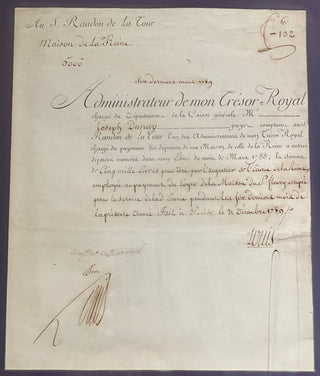 Au S. Randon de La Tour
152
Maison de la Reine
5000
Six derniers mois 1789
Administrateur de mon Trésor Royal
chargé du Département de la Caisse générale, Mr
Joseph Durney payez comptant au S.
Randon de La Tour l'un des Administrateurs de mon Trésor Royal
chargé du payement des dépenses de ma Maison, de celle de la Reine & autres
dépenses énoncées dans mon Edit du mois de Mars 1788, la somme
de Cinq mille livres pour être par l'argentier de l'Ecurie de la Reine,
employée au payement du loyer de la Maison du Sr
pour le service de lad. Ecurie pendant les six derniers mois de
la présente année. Fait à Paris le 31 Décembre 1789
Louis
Bon
Louis